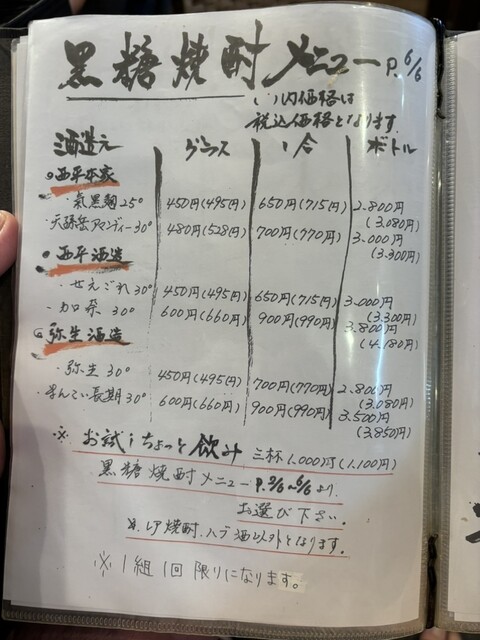 黒糖焼酎メニュー P.6/6
( )内価格は
税込価格となります。
酒造元 グラス 1合 ボトル
西平本家
・氣黒麹25° 450円(495円) 650円(715円) 2.800円(3.080円)
アマンディー30° 480円(528円) 700円(770円) 3.000円(3.300円)
西平酒造
・せえごれ30° 450円(495円) 650円(715円) 3.000円(3.300円)
・加那 30° 600円(660円) 900円(990円) 3.800円(4.180円)
弥生酒造
・弥生 30° 450円(495円) 700円(770円) 2.800円(3.080円)
・まんこい長期30° 600円(660円) 900円(990円) 3.500円(3.850円)
※ お試しちょっと飲み 三杯 1.000円(1.100円)
黒糖焼酎メニューP.2/6〜6/6より、
お選び下さい。
※レア焼酎、ハブ酒以外となります。
※1組1回限りになります。